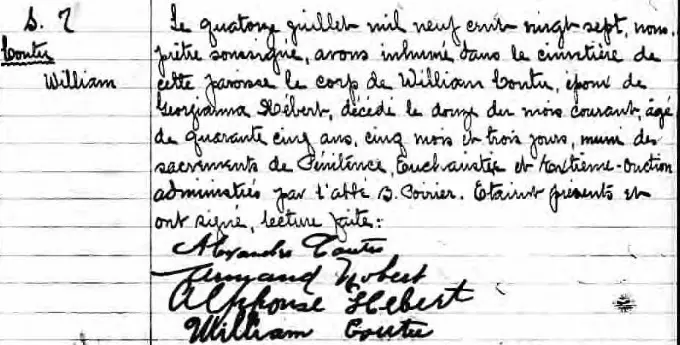 S. 7
Coutu
William
Le quatorze juillet mil neuf cent vingt sept, nous,
prêtre soussigné, avons inhumé dans le cimetière de
cette paroisse le corp de William Coutu, époux de
Georgianna Hébert, décédé le douze du mois courant, âgé
de quarante cinq ans, cinq mois et trois jours, muni des
sacrements de Pénitence, Eucharistie et Extrême-Onction
administrés par l'abbé S. Poirier. Etaient présents et
ont signé, lecture faite:
Alexandre Coutu
Armand Hebert
Alphonse Hebert
William Coutu